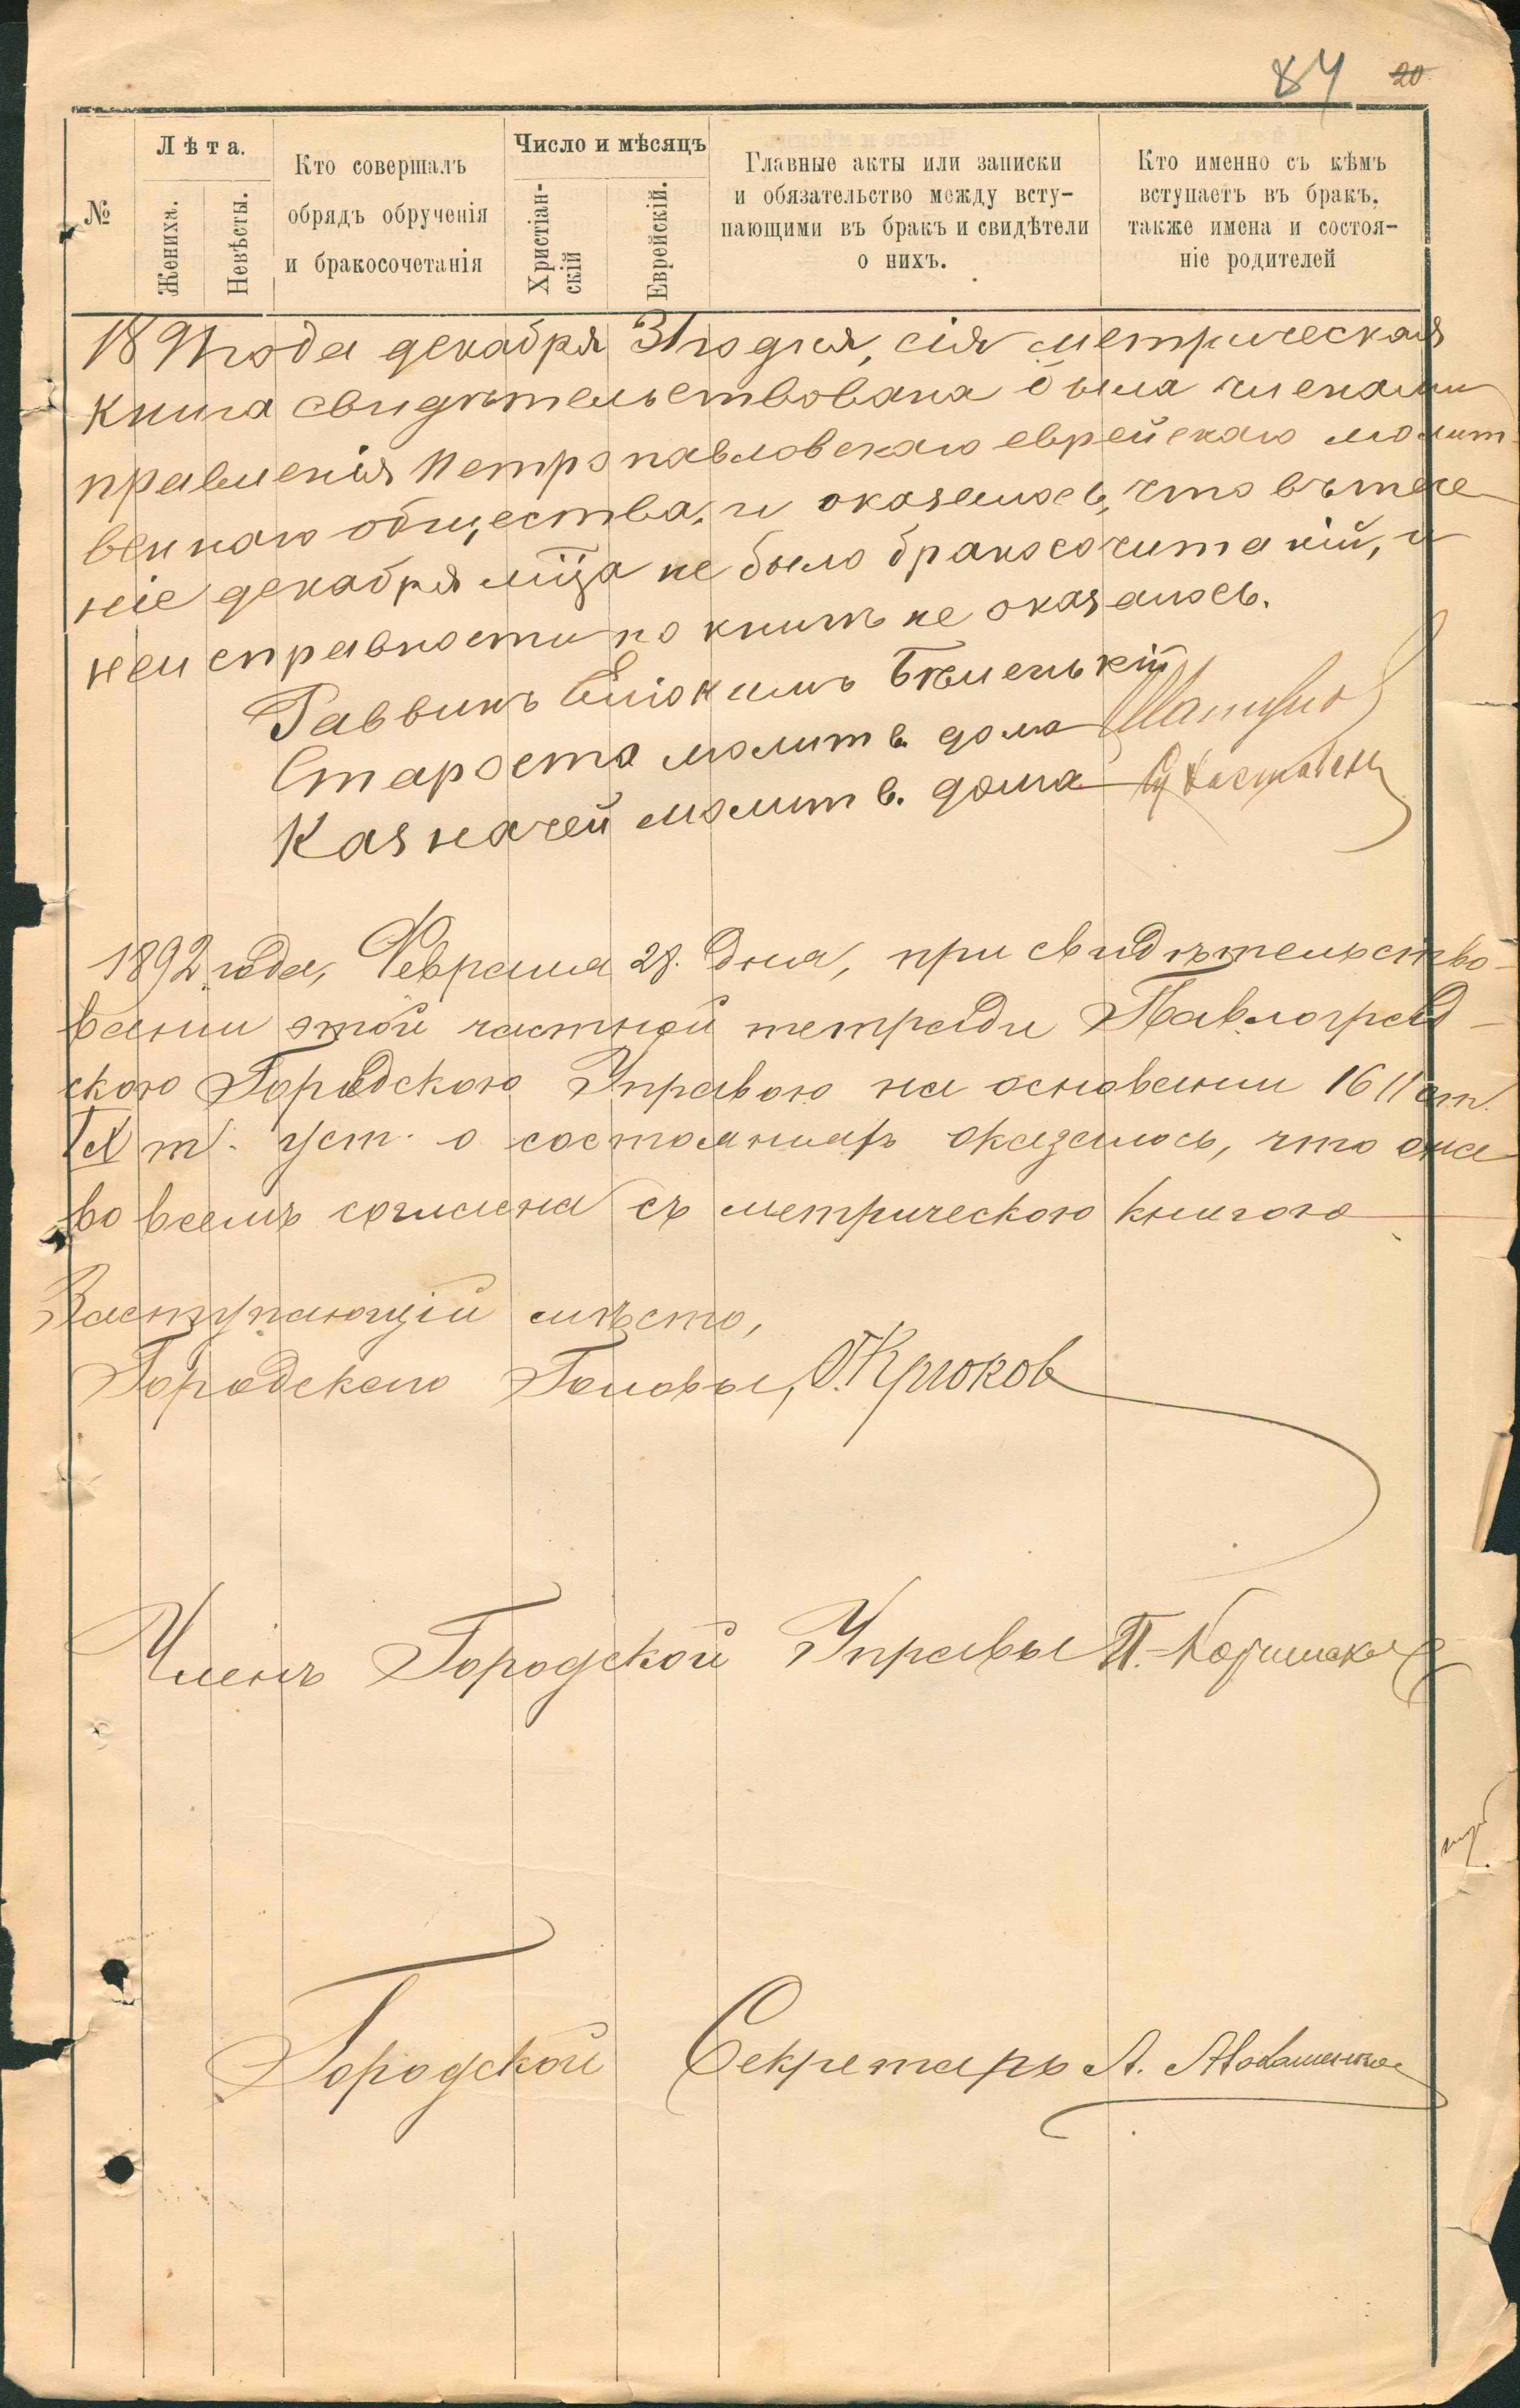 84 20
№
Лѣта.
Жениха.
Невѣсты.
Кто совершалъ
обрядъ обрученія
и бракосочетанія
Число и мѣсяцъ
Христіан-
скій
Еврейскій.
Главные акты или записки
и обязательство между всту-
пающими въ бракъ и свидѣтели
о нихъ.
Кто именно съ кѣмъ
вступаетъ въ бракъ,
также имена и состоя-
ніе родителей
1891 года декабря 31го дня, сія метрическая
книга свидѣтельствована была членами
правленія Петропавловскаго еврейскаго молит-
веннаго общества, и оказалось, что въ тече
ніе декабря мѣца не было бракосочитаній, и
неисправности по книгѣ не оказалось.
Раввинъ Еліокимъ Бѣленькій
Староста молитв. дома Шапиро
Казначей молитв. дома
1892 года, Февраля 28. дня, при свидѣтельство-
ваніи этой частной тетради Павлоград-
скою Городскою Управою на основаніи 1611 ст.
IX т. уст. о состояніяхъ оказалось, что она
во всемъ согласна съ метрическою книгою
Заступающій мѣсто,
Городскаго Головы, О. Крюков
Членъ Городской Управы П.
Городской Секретарь А.